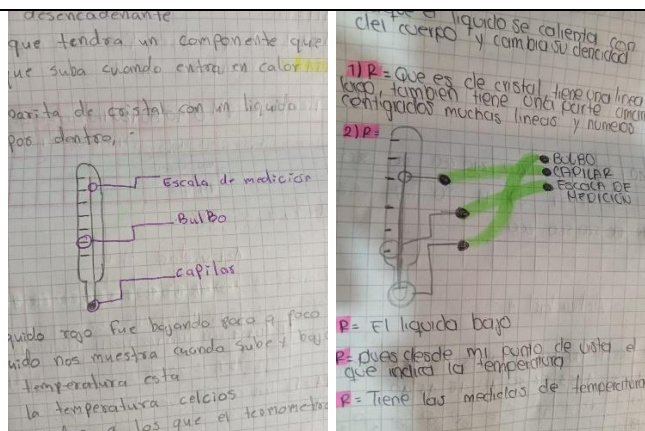 desencadenante
que tendra un componente que
que suba cuando entra en calor
barita de cristal con un liquido
por dentro,
Escala de medición
BulBo
capilar
quido rojo fue bajando poco a poco
uido nos muestra cuando sube y baj
temperatura esta
la temperatura celcios
los que el termometro
que el liquido se calienta con
del cuerpo y cambia su dencidad
1) R= Que es de cristal, tiene una linea
larga, tambien tiene una parte
centigrados muchas lineas y numeros
2) R=
BULBO
CAPILAR
ESCALA DE
MEDICION
R= El liquido bajo
R= pues desde mi punto de vista el
que indica la temperatura
R= Tiene las medidas de temperatura